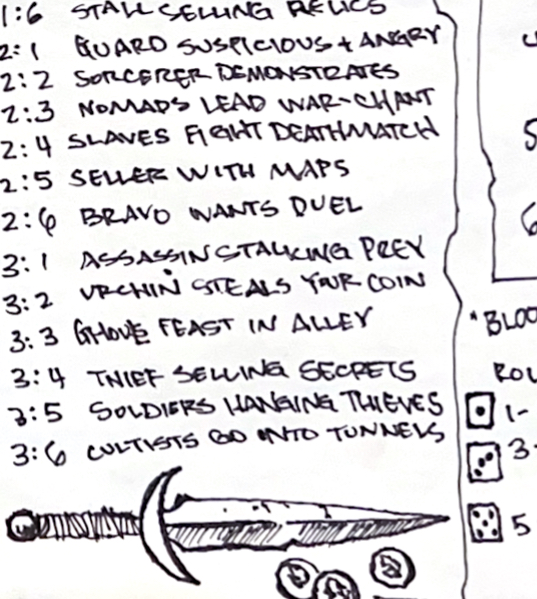 1:6 STALL SELLING RELICS
2:1 GUARD SUSPICIOUS + ANGRY
2:2 SORCERER DEMONSTRATES
2:3 NOMADS LEAD WAR-CHANT
2:4 SLAVES FIGHT DEATHMATCH
2:5 SELLER WITH MAPS
2:6 BRAVO WANTS DUEL
3:1 ASSASSIN STALKING PREY
3:2 URCHIN STEALS YOUR COIN
3:3 GHOUL FEAST IN ALLEY
3:4 THIEF SELLING SECRETS
3:5 SOLDIERS HANGING THIEVES
3:6 CULTISTS GO INTO TUNNELS
5
6
*BLOO
ROL
1-
3-
5